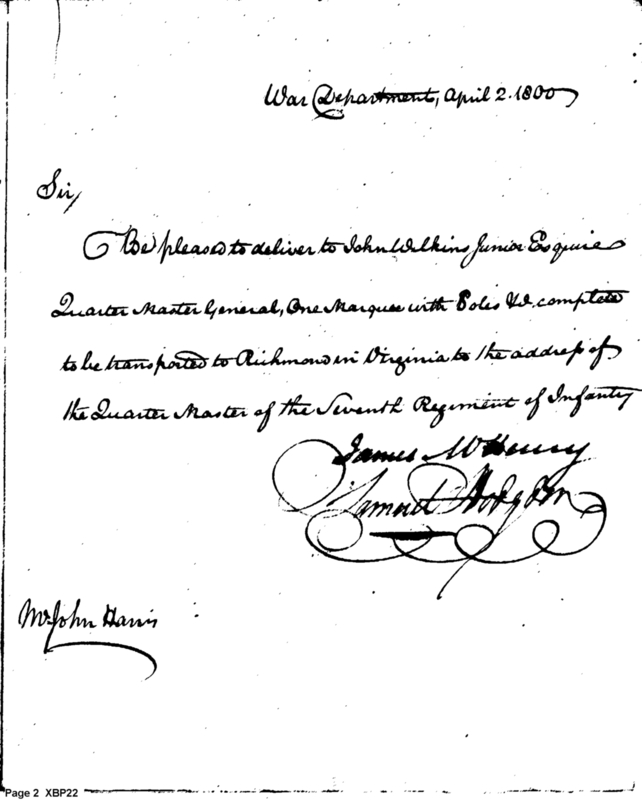 War Department, April 2. 1800
Sir,
Be pleased to deliver to John Wilkins Junior Esquire
Quarter Master General, One Marquee with Poles &c. complete
to be transported to Richmond in Virginia to the address of
the Quarter Master of the Seventh Regiment of Infantry
James McHenry
Samuel Hodgdon
Mr. John Harris
Page 2 XBP22